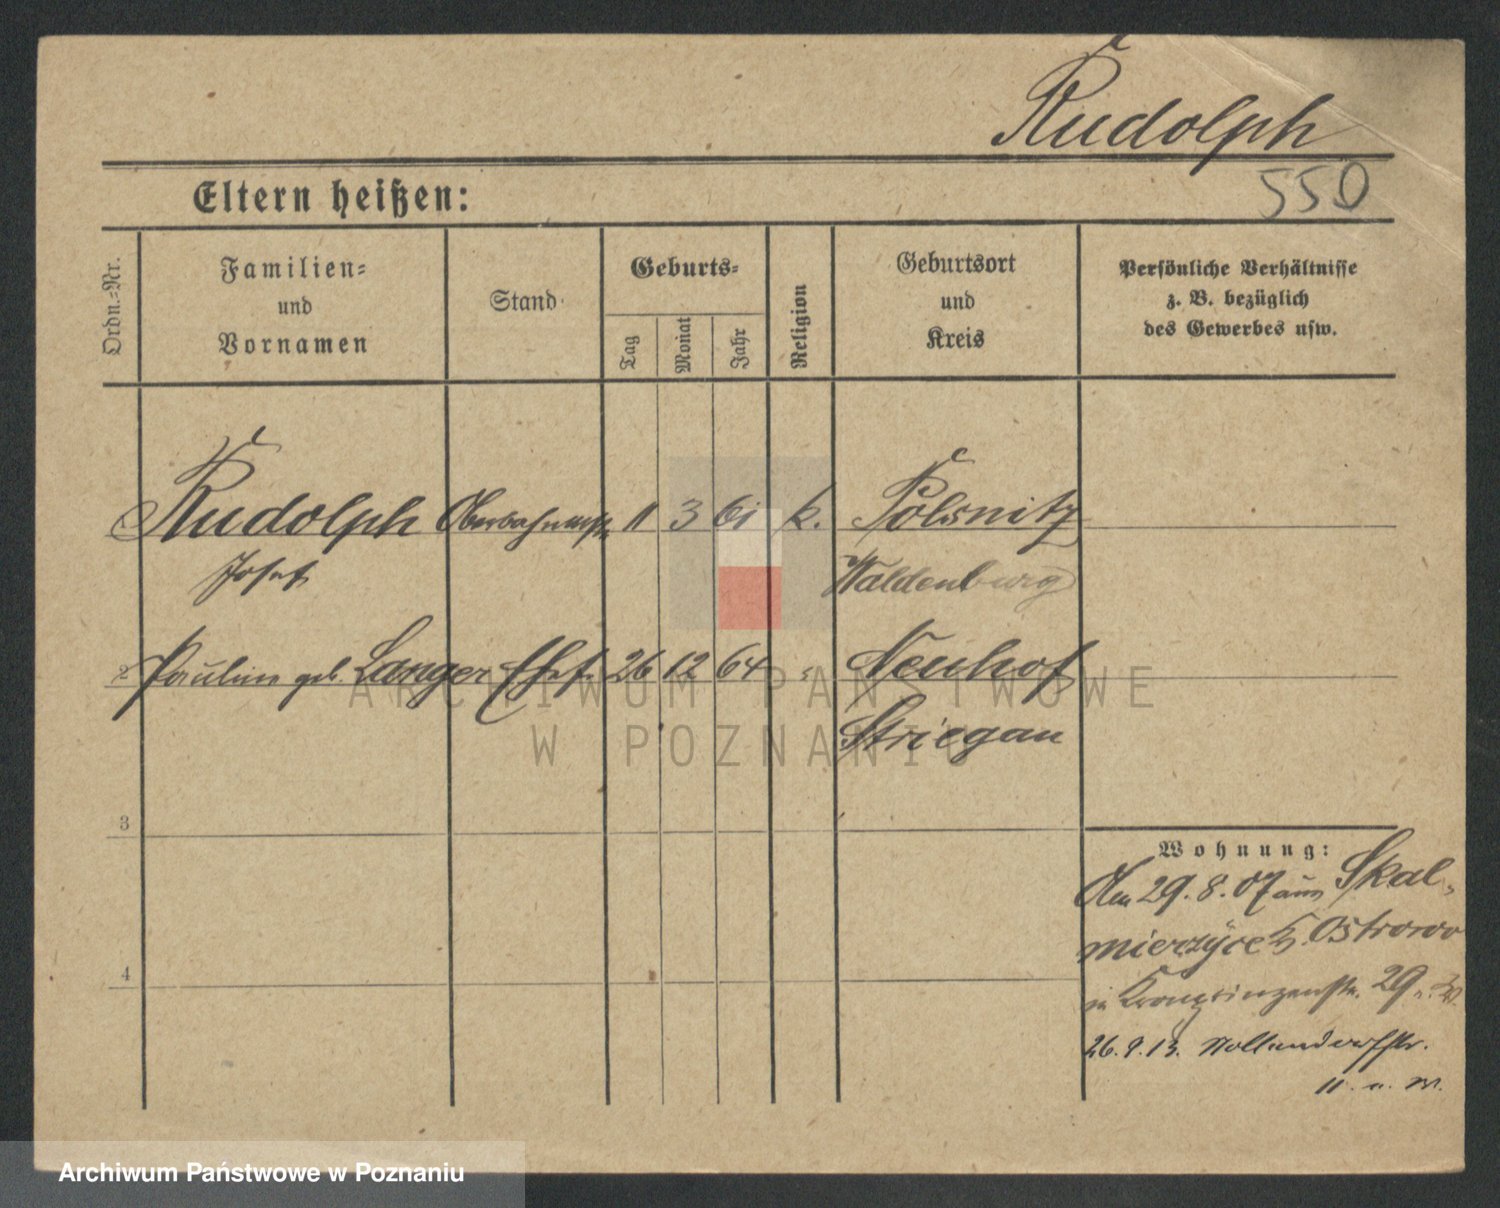 Rudolph
550
Eltern heißen:
Ordn.-Nr.
Familien-
und
Vornamen
Stand
Geburts-
Tag
Monat
Jahr
Religion
Geburtsort
und
Kreis
Persönliche Verhältnisse
z. B. bezüglich
des Gewerbes usw.
1 Rudolph 11 3 61 k. Polsnitz
Josef Waldenburg
2 Paulina geb. Langer Ehef. 26 12 64 " Neuhof
Striegau
3
Wohnung:
Am 29.8.07 aus Skal-
mierzyce Kr. Ostrowo
in Kronprinzenstr. 29
4
26.9.13. Nollendorfstr.
11
ARCHIWUM PAŃSTWOWE
W POZNANIU
Archiwum Państwowe w Poznaniu